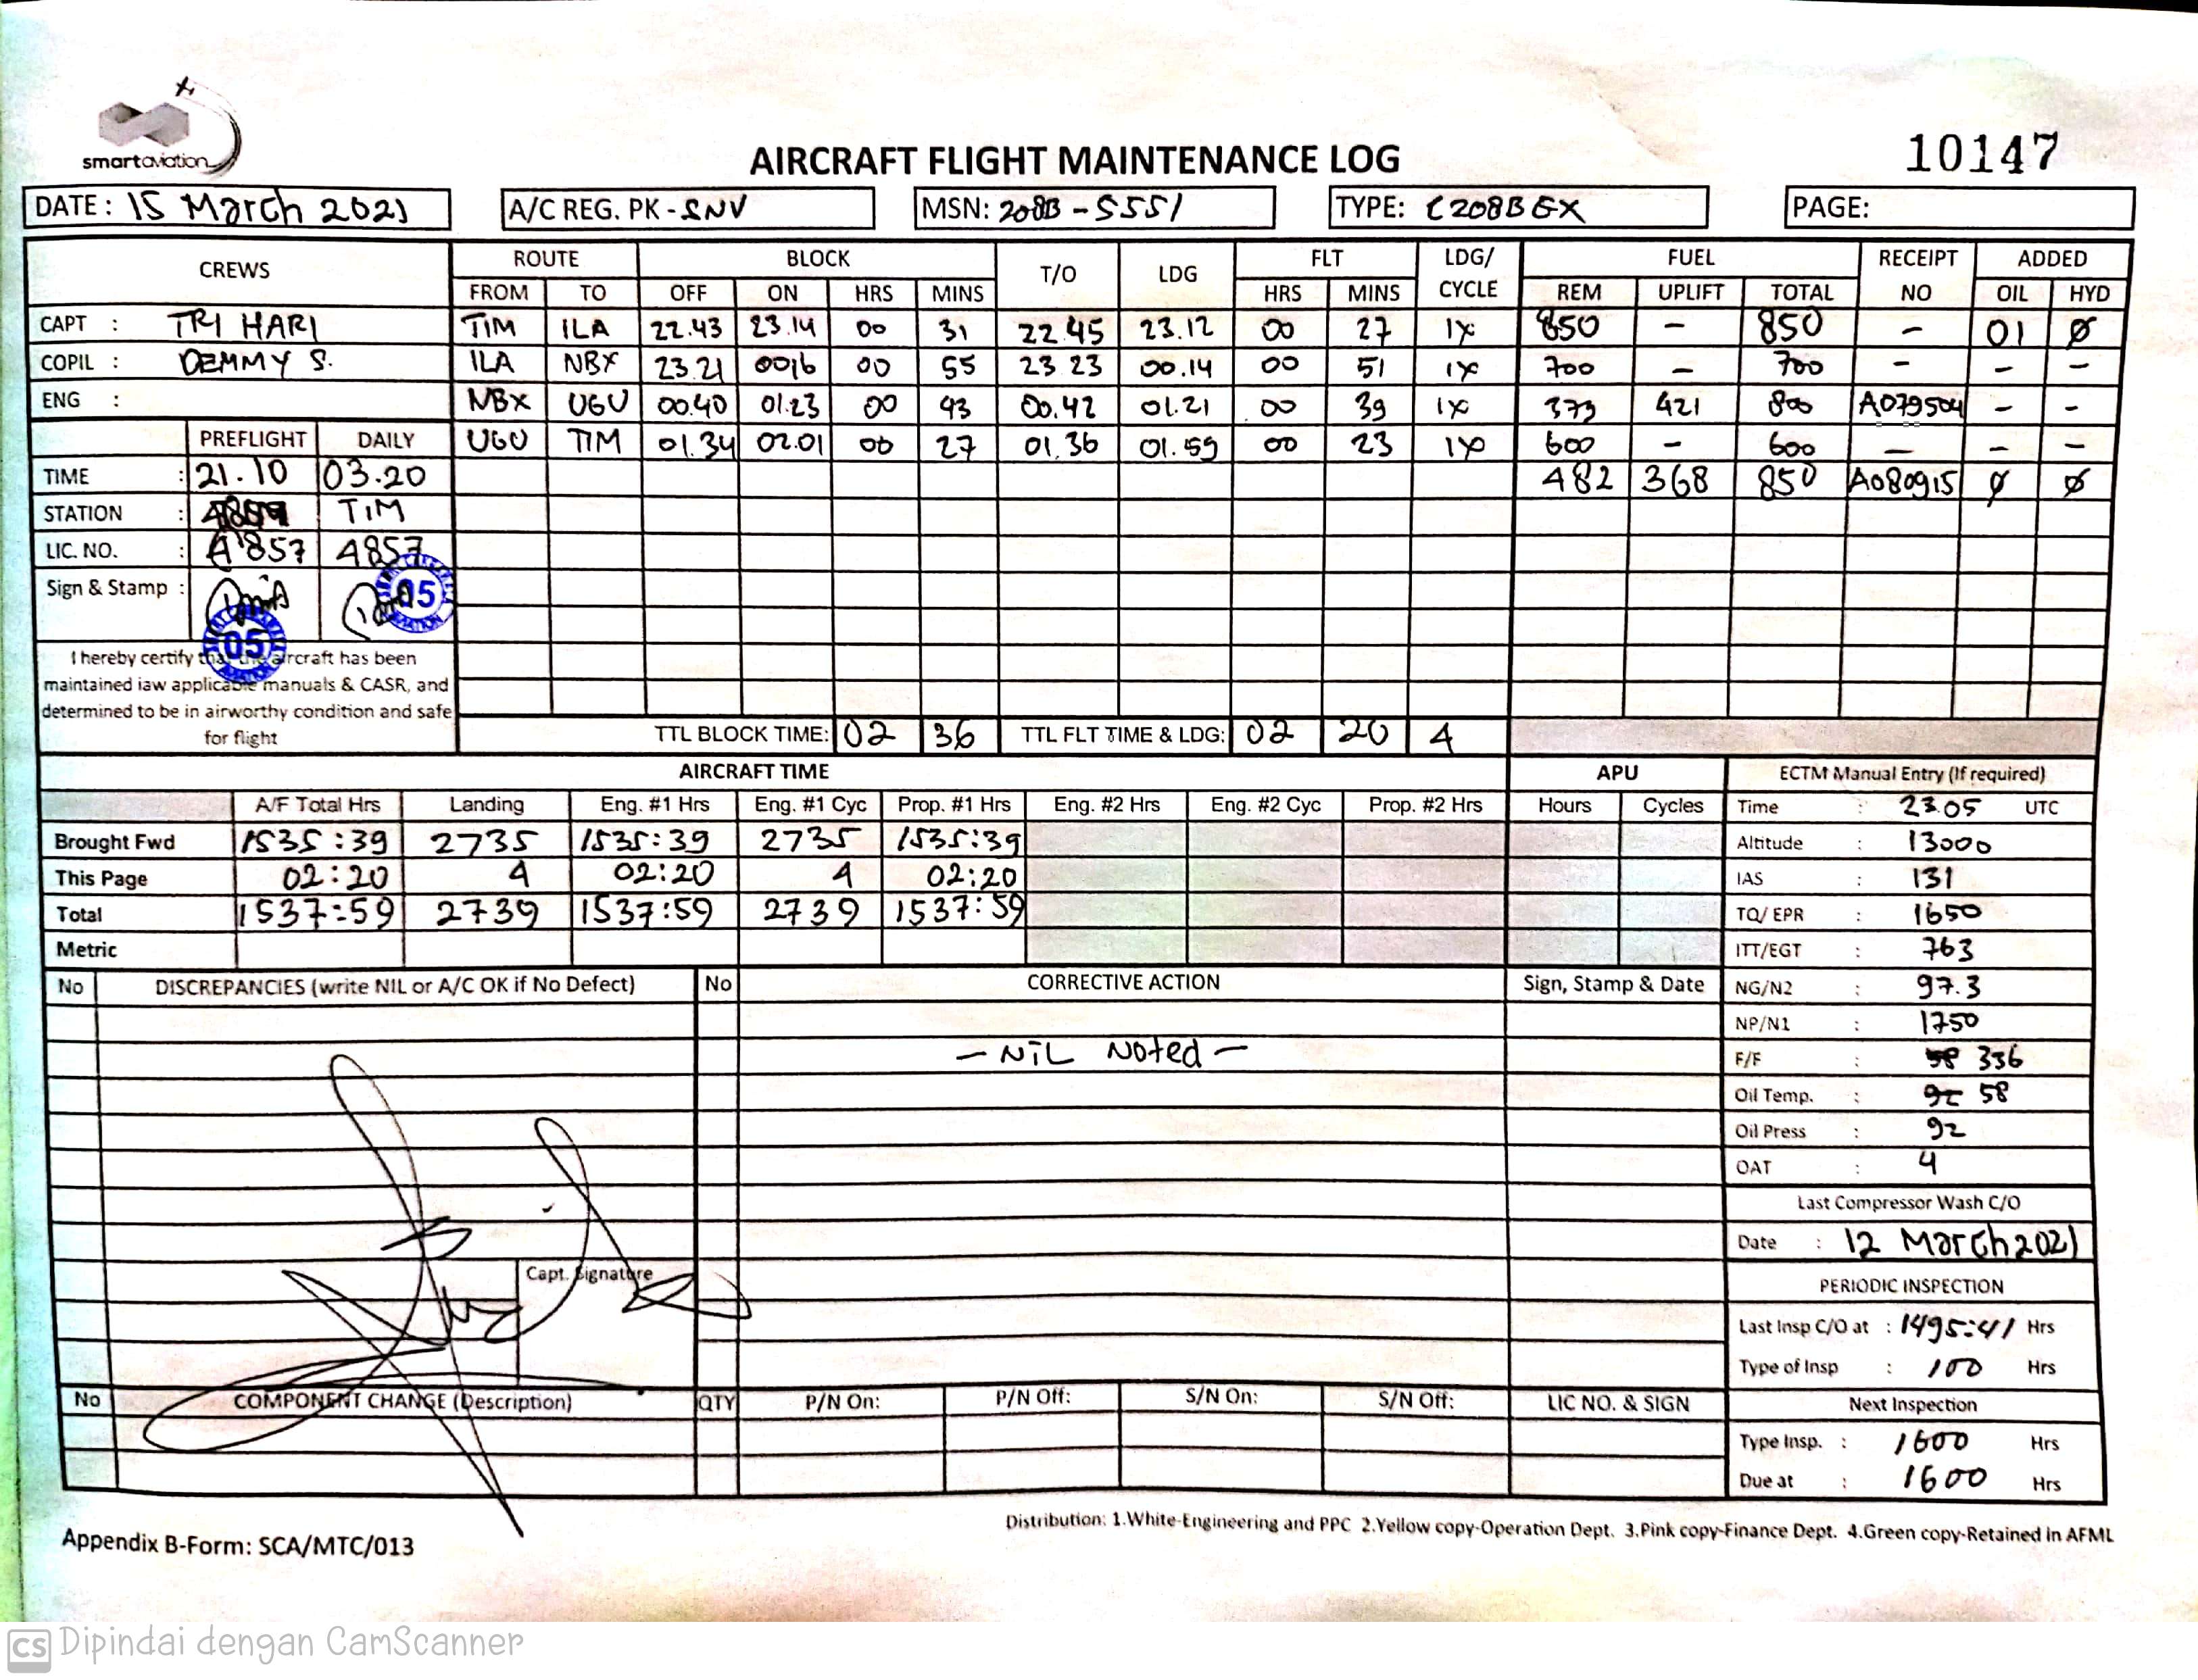 smartaviation
AIRCRAFT FLIGHT MAINTENANCE LOG
10147
DATE: 15 March 2021
A/C REG. PK - SNV
MSN: 208B - 5551
TYPE: C208B EX
PAGE:
CREWS ROUTE BLOCK T/O LDG FLT LDG/ CYCLE FUEL RECEIPT NO ADDED
FROM TO OFF ON HRS MINS HRS MINS REM UPLIFT TOTAL OIL HYD
CAPT : TRI HARI TIM ILA 22.43 23.14 00 31 22.45 23.12 00 27 1x 850 - 850 - 01 Ø
COPIL : DEMMY S. ILA NBX 23.21 0016 00 55 23 23 00.14 00 51 1x 700 - 700 - - -
ENG : NBX UGU 00.40 01.23 00 43 00.42 01.21 00 39 1x 379 421 800 A079504 - -
PREFLIGHT DAILY UGU TIM 01.34 02.01 00 27 01.36 01.59 00 23 1x 600 - 600 - - -
TIME : 21.10 03.20 482 368 850 A080915 Ø Ø
STATION : TIM
LIC. NO. : A'857 4857
Sign & Stamp :
05
05
I hereby certify that the aircraft has been
maintained iaw applicable manuals & CASR, and
determined to be in airworthy condition and safe
for flight
TTL BLOCK TIME: 02 36 TTL FLT TIME & LDG: 02 20 4
AIRCRAFT TIME APU ECTM Manual Entry (If required)
A/F Total Hrs Landing Eng. #1 Hrs Eng. #1 Cyc Prop. #1 Hrs Eng. #2 Hrs Eng. #2 Cyc Prop. #2 Hrs Hours Cycles Time : 23.05 UTC
Brought Fwd 1535:39 2735 1535:39 2735 1535:39 Altitude : 13000
This Page 02:20 4 02:20 4 02:20 IAS : 131
Total 1537:59 2739 1537:59 2739 1537:59 TQ/ EPR : 1650
Metric ITT/EGT : 763
No DISCREPANCIES (write NIL or A/C OK if No Defect) No CORRECTIVE ACTION Sign, Stamp & Date NG/N2 : 97.3
NP/N1 : 1750
- NIL Noted -
F/F : 58 336
Oil Temp. : 92 58
Oil Press : 92
OAT : 4
Last Compressor Wash C/O
Date : 12 March 2021
Capt. Signature
PERIODIC INSPECTION
Last Insp C/O at : 1495:41 Hrs
Type of Insp : 100 Hrs
No COMPONENT CHANGE (Description) QTY P/N On: P/N Off: S/N On: S/N Off: LIC NO. & SIGN Next Inspection
Type Insp. : 1600 Hrs
Due at : 1600 Hrs
Distribution: 1.White-Engineering and PPC 2.Yellow copy-Operation Dept. 3.Pink copy-Finance Dept. 4.Green copy-Retained in AFML
Appendix B-Form: SCA/MTC/013
CS Dipindai dengan CamScanner